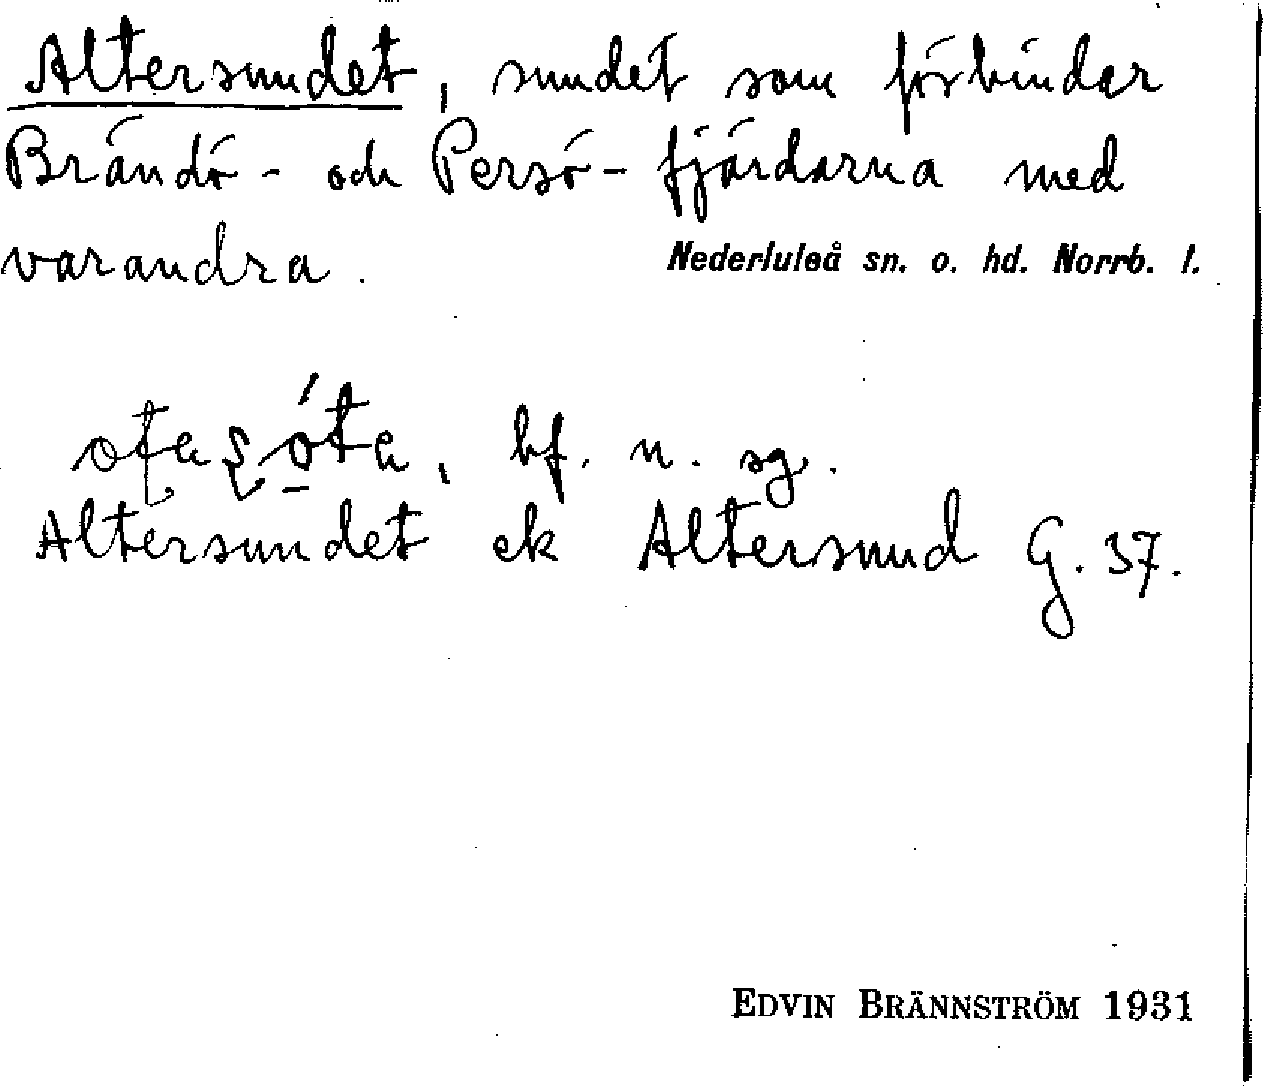 Altersundet, sundet som förbindar
Brändö- och Persö-fjärdarna med
varandra.
Nederluleå sn. o. hd. Norrb. l.
bf. n. sg.
Altersundet ek Altersund G. 37.
EDVIN BRÄNNSTRÖM 1931